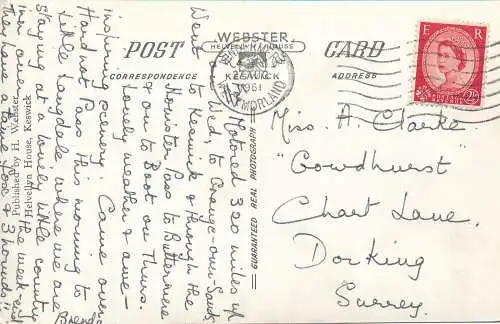 POST CARD
WEBSTER
HELVELLYN HOUSE
KESWICK
CORRESPONDENCE
ADDRESS
WESTMORLAND
1961
E R
2½D
GUARANTEED REAL PHOTOGRAPH
Published by H. Webster,
Helvellyn House, Keswick
Motored 320 miles
Wed. to Grange-over-Sands
Went to Keswick & through the
Honister Pass to Buttermere
& on to Boot on Thurs.
Lovely weather & awe-
inspiring scenery. Came over
Hard not Pass this morning to
Little Langdale where we are
staying at a lovely little country
inn over the week-end
They have a tame fox & 3 hounds!!
Brenda
Miss A. Clarke
"Gowdhurst"
Chart Lane,
Dorking
Surrey.